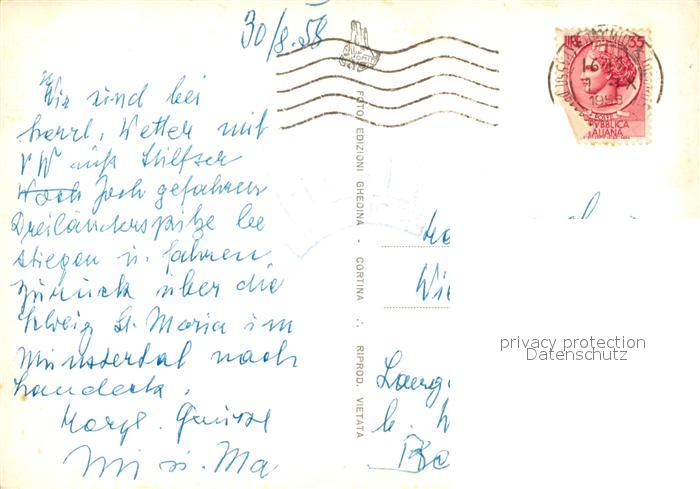 30/8.58
Wir sind bei
herrl. Wetter mit
VW aufs Stilfser
Joch gefahren
Dreiländerspitze be
stiegen u. fahren
zurück über die
Schweiz St. Maria im
Münstertal nach
Landeck.
Herzl. Grüsse
Mi u. Ma
FOTO EDIZIONI GHEDINA - CORTINA ∴ RIPROD. VIETATA
LIRE 35
1958
REPUBBLICA
ITALIANA
Wie
Lang
b.
privacy protection
Datenschutz